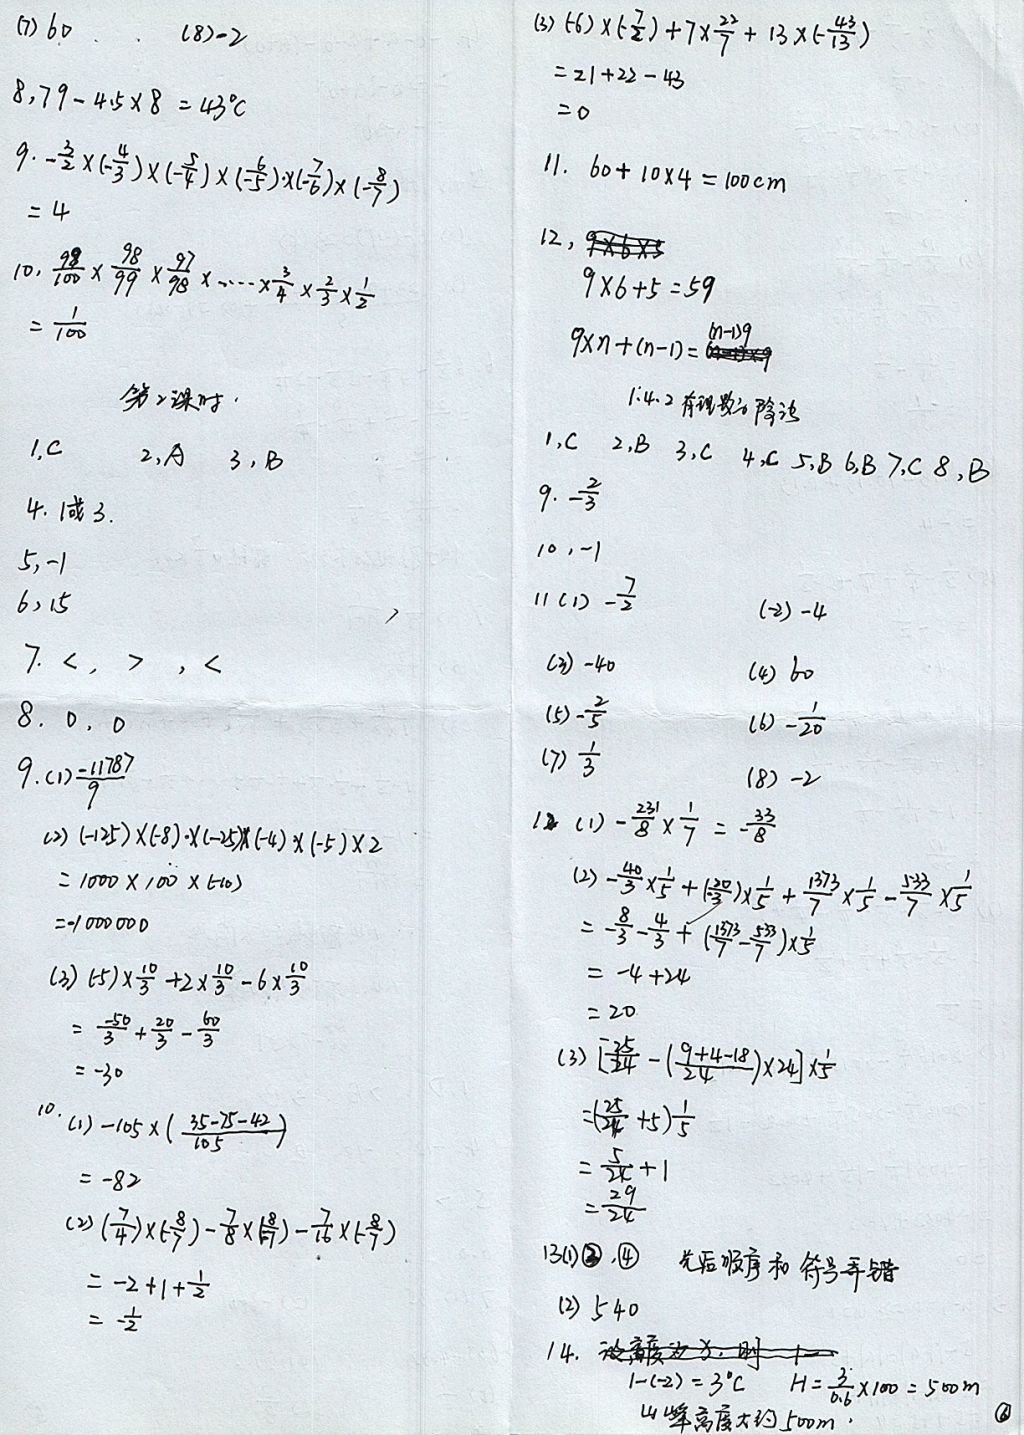 (7) 60 (8) -2
8, 79 - 4.5 × 8 = 43℃
9. -3/2 × (-4/3) × (-5/4) × (-6/5) × (-7/6) × (-8/7)
= 4
10, 98/100 × 98/99 × 97/98 × ····· × 3/4 × 2/3 × 1/2
= 1/100
第2课时.
1, C 2, A 3, B
4. 1或3.
5, -1
6, 15
7. <, >, <
8. 0, 0
9. (1) -11787/9
(2) (-125) × (-8) × (-25) × (-4) × (-5) × 2
= 1000 × 100 × (-10)
= -1000000
(3) (-5) × 10/3 + 2 × 10/3 - 6 × 10/3
= -50/3 + 20/3 - 60/3
= -30
10. (1) -105 × (35-75-42/105)
= -82
(2) (7/4) × (-8/7) - 7/8 × (-8/7) - 7/16 × (-8/7)
= -2 + 1 + 1/2
= -1/2
(3) (-6) × (-7/2) + 7 × 22/7 + 13 × (-43/13)
= 21 + 22 - 43
= 0
11. 60 + 10 × 4 = 100cm
12, 9×6×5
9 × 6 + 5 = 59
9×n + (n-1) = (n-1)9
1.4.2 有理数的除法
1, C 2, B 3, C 4, C 5, B 6, B 7, C 8, B
9. -2/3
10, -1
11 (1) -7/2 (2) -4
(3) -40 (4) 60
(5) -2/5 (6) -1/20
(7) 1/3 (8) -2
12 (1) -231/8 × 1/7 = -33/8
(2) -40/3 × 1/5 + (-20/3) × 1/5 + 1373/7 × 1/5 - 533/7 × 1/5
= -8/3 - 4/3 + (1373/7 - 533/7) × 1/5
= -4 + 24
= 20
(3) [25/24 - (9+4-18/24) × 24] × 1/5
= (25/24 + 5) 1/5
= 5/24 + 1
= 29/24
13 (1) ②, ④ 先后顺序和符号弄错
(2) 540
14. 设高度为x, 则
1-(-2) = 3℃ H = 3/0.6 × 100 = 500m
山峰高度大约500m.
⑥